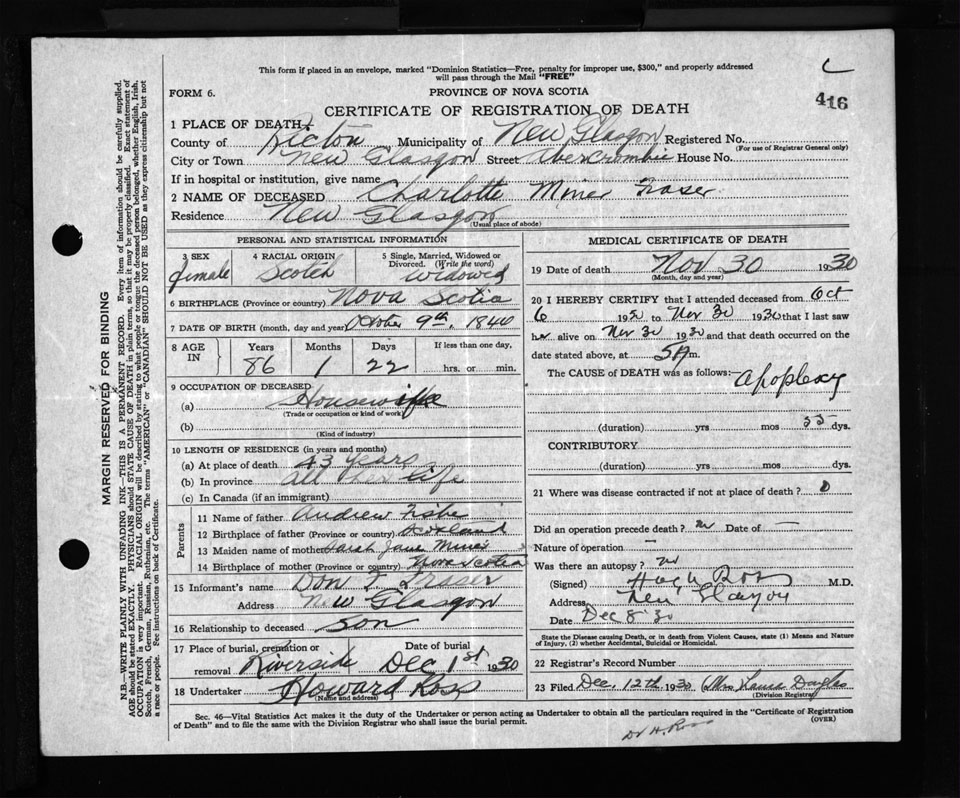 This form if placed in an envelope, marked "Dominion Statistics—Free, penalty for improper use, $300," and properly addressed
will pass through the Mail "FREE"
416
FORM 6.
PROVINCE OF NOVA SCOTIA
CERTIFICATE OF REGISTRATION OF DEATH
1 PLACE OF DEATH
County of Pictou Municipality of New Glasgow Registered No.
(For use of Registrar General only)
City or Town New Glasgow Street Abercrombie House No.
If in hospital or institution, give name
2 NAME OF DECEASED Charlotte Miner Fraser
Residence New Glasgow
(Usual place of abode)
PERSONAL AND STATISTICAL INFORMATION
3 SEX female
4 RACIAL ORIGIN Scotch
5 Single, Married, Widowed or Divorced. (Write the word) widowed
6 BIRTHPLACE (Province or country) Nova Scotia
7 DATE OF BIRTH (month, day and year) October 9th, 1844
8 AGE IN Years Months Days If less than one day,
86 1 22 hrs. or min.
9 OCCUPATION OF DECEASED
(a) Housewife
(Trade or occupation or kind of work)
(b)
(Kind of industry)
10 LENGTH OF RESIDENCE (in years and months)
(a) At place of death 43 years
(b) In province all her life
(c) In Canada (if an immigrant)
Parents
11 Name of father Andrew
12 Birthplace of father (Province or country) Scotland
13 Maiden name of mother Sarah Jane Miner
14 Birthplace of mother (Province or country) Nova Scotia
15 Informant's name Don F. Fraser
Address New Glasgow
16 Relationship to deceased son
17 Place of burial, cremation or removal Riverside
Date of burial Dec 1st 1930
18 Undertaker Howard Ross
(Name and address)
MEDICAL CERTIFICATE OF DEATH
19 Date of death Nov 30 1930
(Month, day and year)
20 I HEREBY CERTIFY that I attended deceased from Oct
6 19 to Nov 30 1930 that I last saw
her alive on Nov 30 1930 and that death occurred on the
date stated above, at 5 A m.
The CAUSE of DEATH was as follows:— Apoplexy
(duration) yrs mos 55 dys.
CONTRIBUTORY
(duration) yrs mos dys.
21 Where was disease contracted if not at place of death?
Did an operation precede death? Date of —
Nature of operation —
Was there an autopsy? no
(Signed) Hugh Ross M.D.
Address New Glasgow
Date Dec 8 30
State the Disease causing Death, or in death from Violent Causes, state (1) Means and Nature
of Injury, (2) whether Accidental, Suicidal or Homicidal.
22 Registrar's Record Number
23 Filed Dec 12th 1930 Mrs Laura Douglas
(Division Registrar)
Sec. 46—Vital Statistics Act makes it the duty of the Undertaker or person acting as Undertaker to obtain all the particulars required in the "Certificate of Registration
of Death" and to file the same with the Division Registrar who shall issue the burial permit.
(OVER)
Dr H. Ross
MARGIN RESERVED FOR BINDING
N.B.—WRITE PLAINLY WITH UNFADING INK—THIS IS A PERMANENT RECORD. Every item of information should be carefully supplied.
AGE should be stated EXACTLY. PHYSICIANS should STATE CAUSE OF DEATH in plain terms, so that it may be properly classified. Exact statement of
OCCUPATION is very important. RACIAL ORIGIN will be described by stating to what people or tongue the deceased person belonged, whether English, Irish,
Scotch, French, German, Russian, Ruthenian, etc. The terms "AMERICAN" or "CANADIAN" SHOULD NOT BE USED as they express citizenship but not
a race or people. See instructions on back of Certificate.